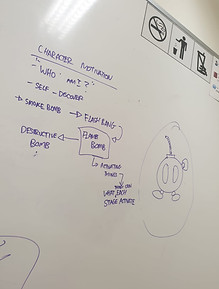 CHARACTER MOTIVATION
- "WHO AM I?"
- SELF - DISCOVER
- SMOKE BOMB
FLASH BANG
DESTRUCTIVE
BOMB
FLAME
BOMB
ACTIVATING
WHAT EACH
STAGE ACTIVATE